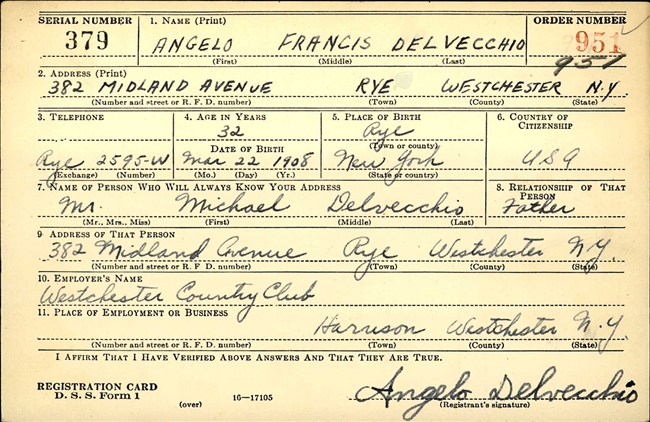 SERIAL NUMBER 1. NAME (Print) ORDER NUMBER
379 ANGELO FRANCIS DELVECCHIO 951
(First) (Middle) (Last) 951
2. ADDRESS (Print)
382 MIDLAND AVENUE RYE WESTCHESTER N.Y.
(Number and street or R. F. D. number) (Town) (County) (State)
3. TELEPHONE 4. AGE IN YEARS 5. PLACE OF BIRTH 6. COUNTRY OF CITIZENSHIP
32 Rye
DATE OF BIRTH (Town or county)
Rye 2595-W Mar 22 1908 New York USA
(Exchange) (Number) (Mo.) (Day) (Yr.) (State or country)
7. NAME OF PERSON WHO WILL ALWAYS KNOW YOUR ADDRESS 8. RELATIONSHIP OF THAT PERSON
Mr. Michael Delvecchio Father
(Mr., Mrs., Miss) (First) (Middle) (Last)
9 ADDRESS OF THAT PERSON
382 Midland Avenue Rye Westchester N.Y.
(Number and street or R. F. D. number) (Town) (County) (State)
10. EMPLOYER'S NAME
Westchester Country Club
11. PLACE OF EMPLOYMENT OR BUSINESS
Harrison Westchester N.Y.
(Number and street or R. F. D. number) (Town) (County) (State)
I AFFIRM THAT I HAVE VERIFIED ABOVE ANSWERS AND THAT THEY ARE TRUE.
REGISTRATION CARD
D. S. S. Form 1 (over) 16—17105 Angelo Delvecchio
(Registrant's signature)